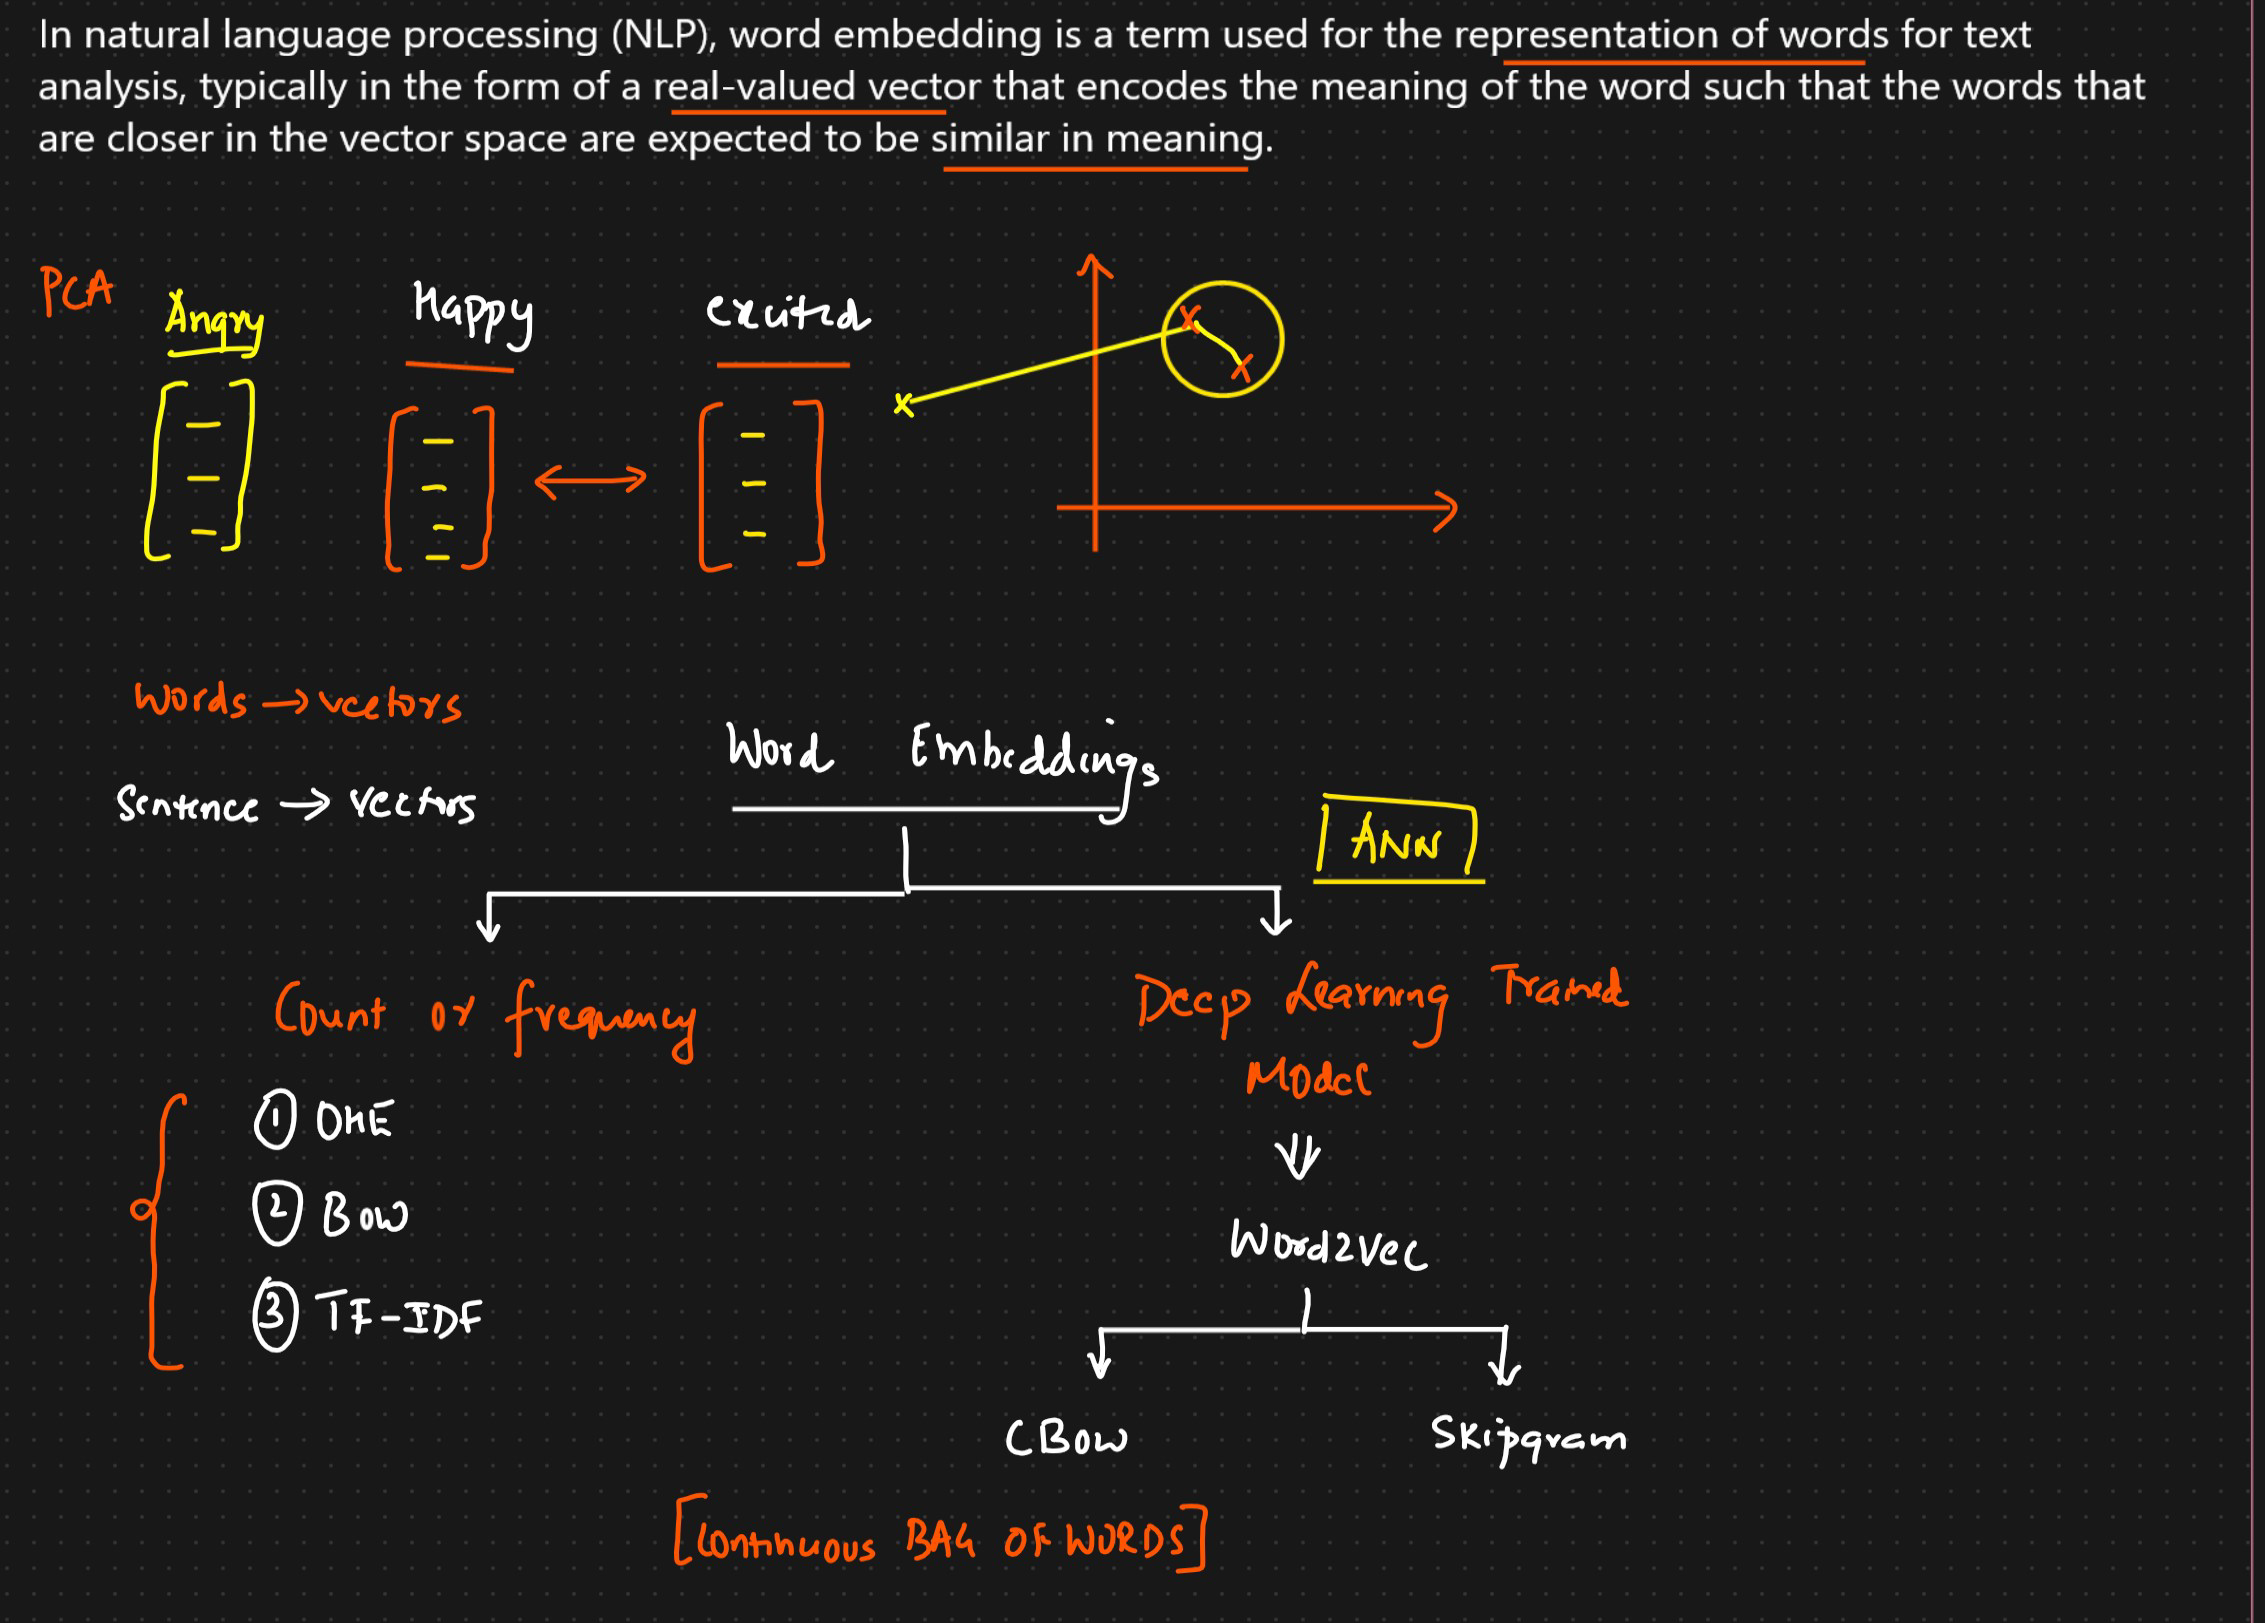 In natural language processing (NLP), word embedding is a term used for the representation of words for text
analysis, typically in the form of a real-valued vector that encodes the meaning of the word such that the words that
are closer in the vector space are expected to be similar in meaning.
PCA
Angry
Happy
excited
words → vectors
Sentence → vectors
Word Embeddings
ANN
Count or frequency
Deep Learning Trained
Model
① OHE
② BOW
③ TF-IDF
Word2vec
CBOW
Skipgram
[Continuous BAG OF WORDS]